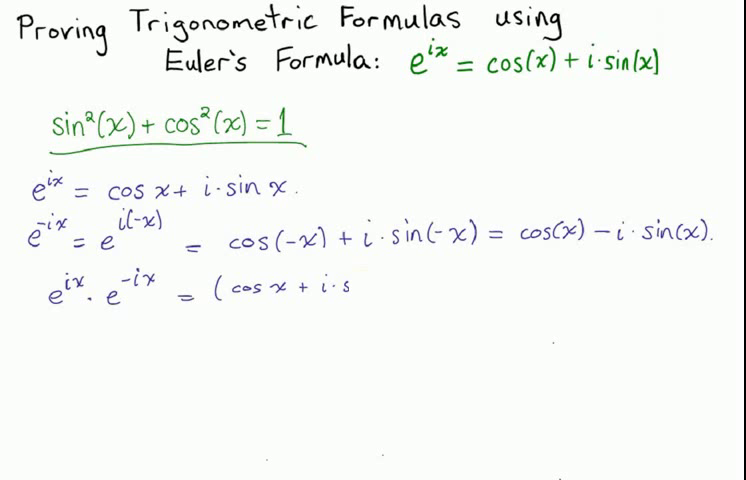 Proving Trigonometric Formulas using
Euler's Formula: e^{ix} = cos(x) + i·sin(x)
sin²(x) + cos²(x) = 1
e^{ix} = cos x + i·sin x.
e^{-ix} = e^{i(-x)} = cos(-x) + i·sin(-x) = cos(x) - i·sin(x).
e^{ix}·e^{-ix} = (cos x + i·s